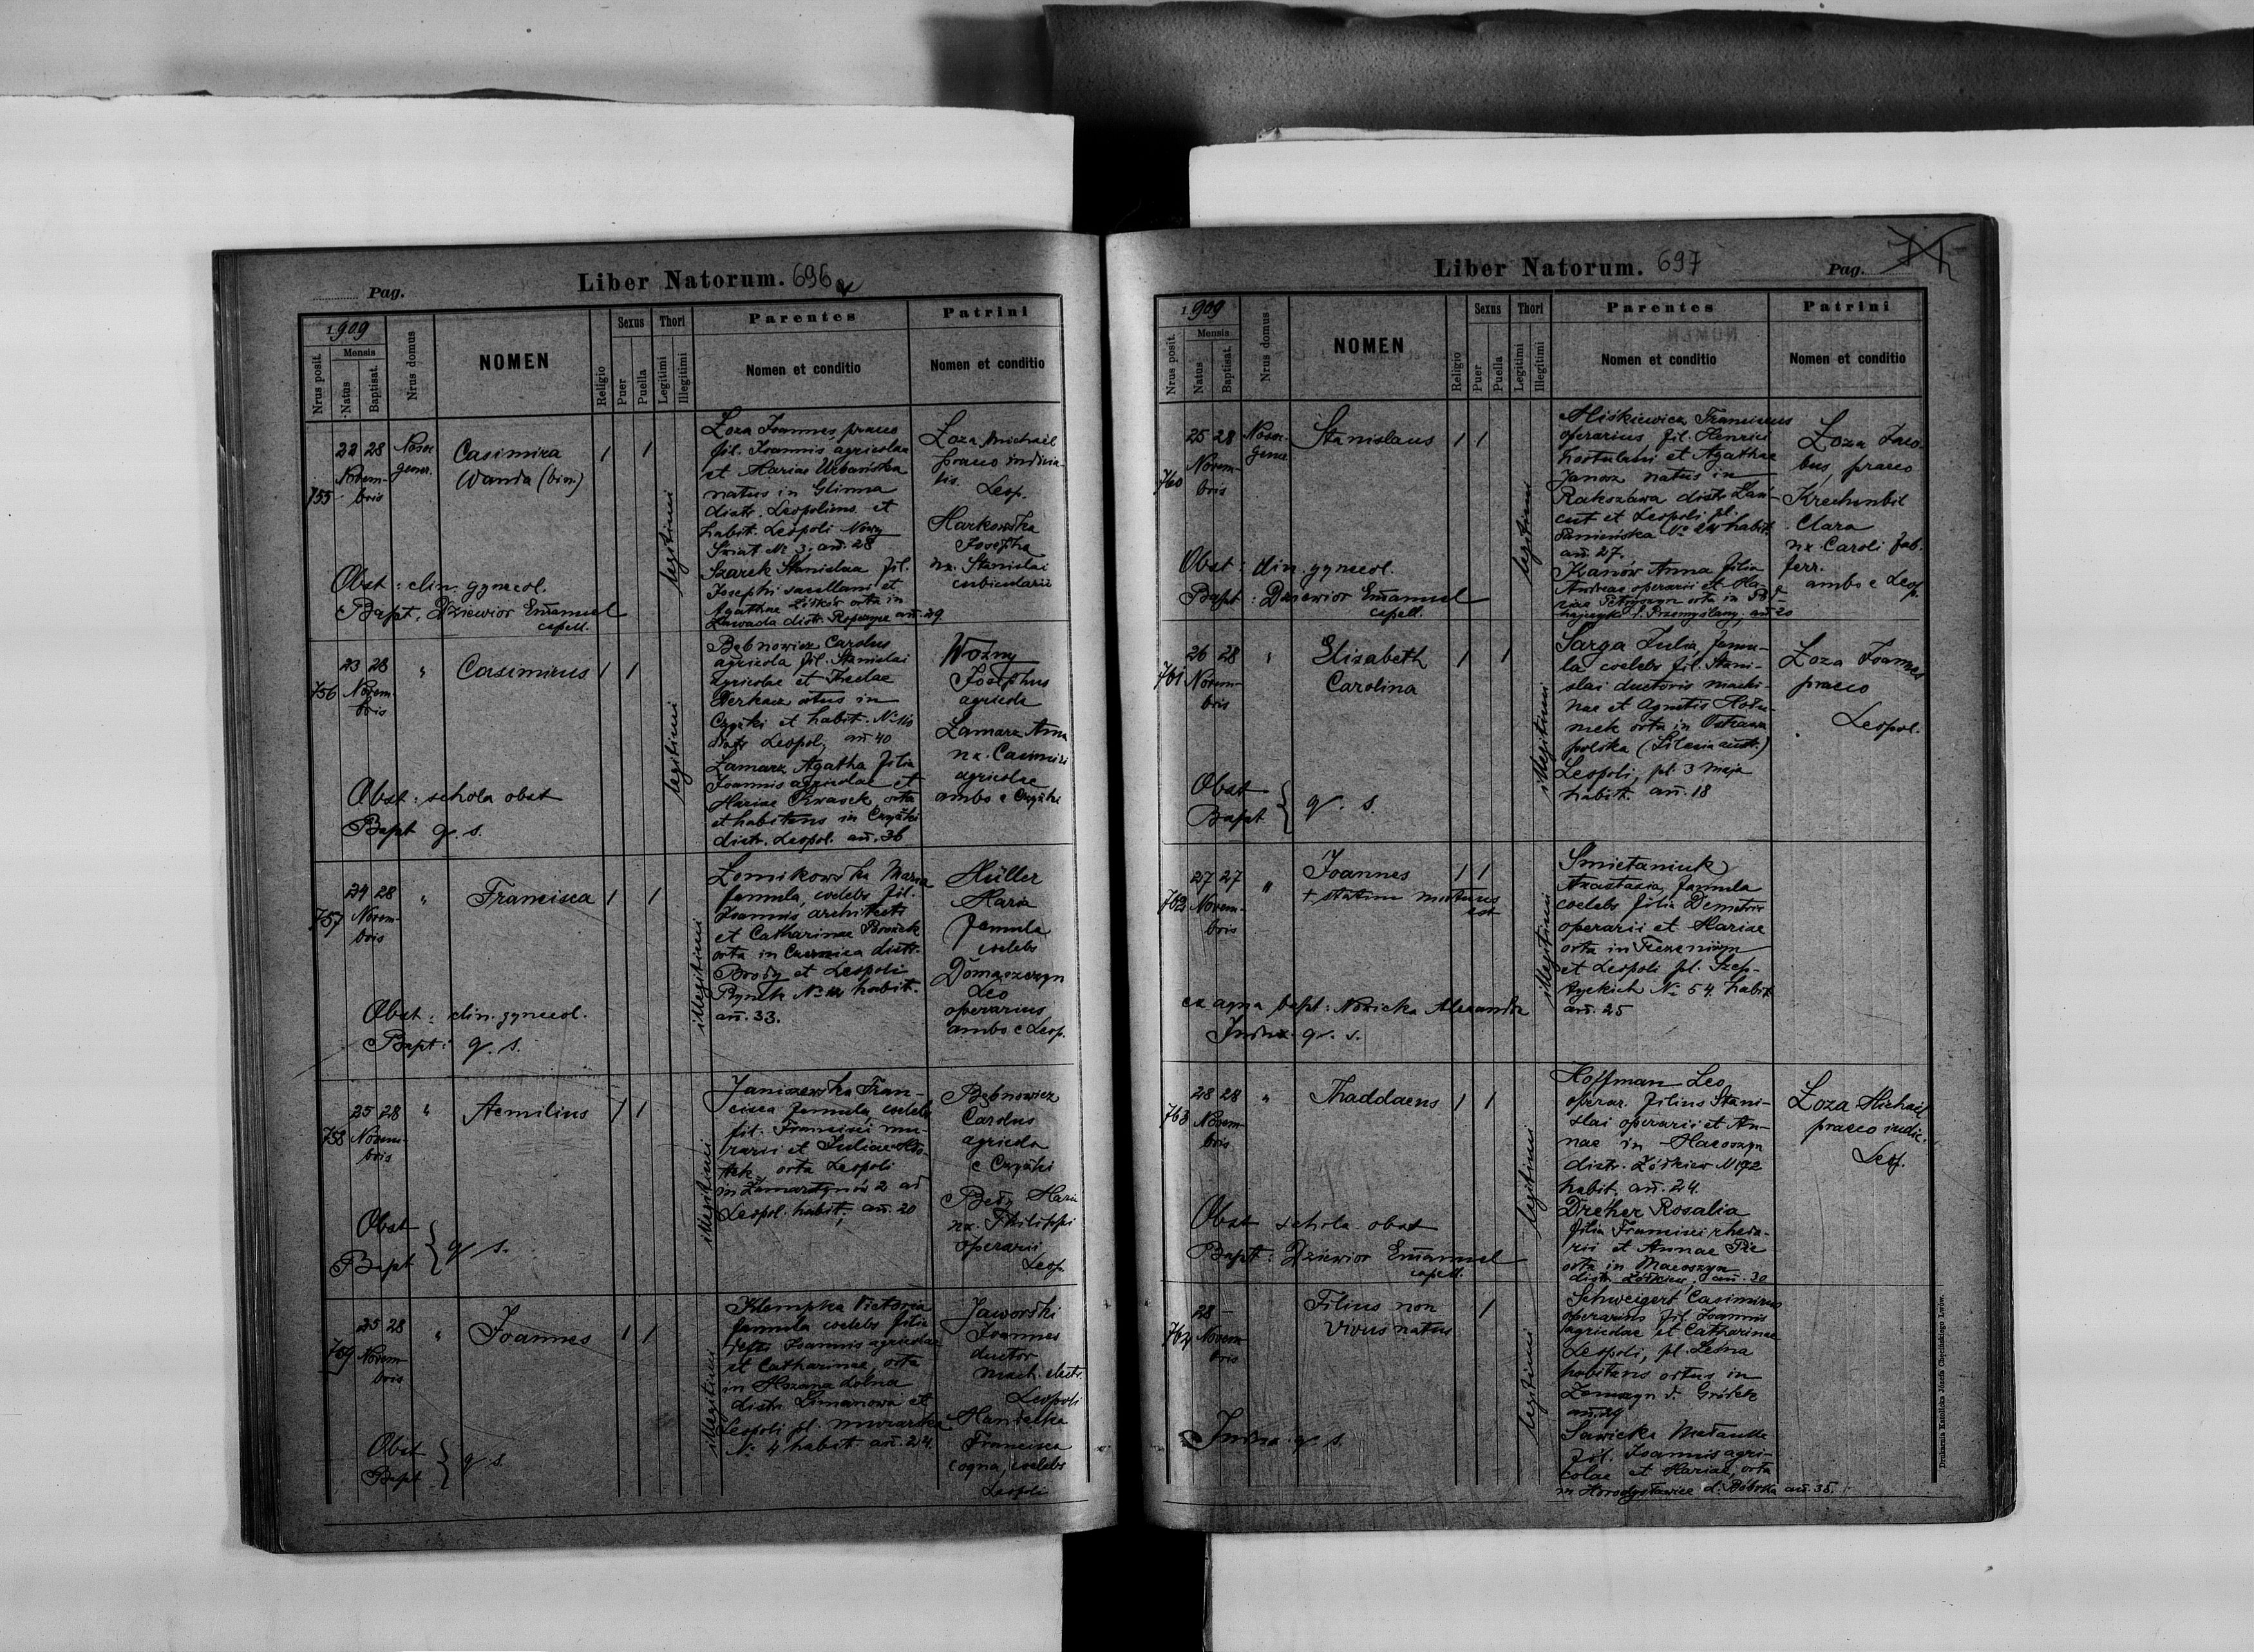 Pag.
Liber Natorum. 696
1909
Nrus posit.
Mensis
Natus
Baptisat.
Nrus domus
NOMEN
Religio
Sexus
Puer
Puella
Thori
Legitimi
Illegitimi
Parentes
Nomen et conditio
Patrini
Nomen et conditio
755
22 28
Novem-
bris
Nosoc
gener.
Casimira
Wanda (bin.)
1 1
legitimi
Łoza Joannes, praeco
fil. Joannis agricolae
et Mariae Urbańska
natus in Glinna
distr. Leopoliens. et
habit. Leopoli Nowy
Świat № 3. añ. 28
Szarek Stanislaa fil.
Josephi sacellani et
Agathae Ziółków orta in
Zawada distr. Ropczyce añ. 29
Łoza Michael
praeco indicia-
lis.
Leop.
Markowska
Josepha
ux. Stanislai
cubicularii
Obst: clin. gynecol.
Bapt. Dziewior Emanuel
capell.
756
23 28
Novem-
bris
"
Casimirus
1 1
legitimi
Bębnowicz Carolus
agricola fil. Stanislai
agricolae et Theclae
Derkacz ortus in
Czyżki et habit. № 110
distr. Leopol, añ 40
Lamarz Agatha filia
Joannis agricolae et
Mariae Kwasek, orta
et habitans in Czyżki
distr. Leopol. añ. 36
Woźny
Josephus
agricola
Lamarz Anna
ux. Casimiri
agricolae
ambo e Czyżki
Obst: schola obst
Bapt q. s.
757
24 28
Novem-
bris
"
Francisca
1 1
illegitimi
Łomikowska Maria
famula, coelebs fil.
Joannis architecti
et Catharinae
orta in Czernica distr.
Brody et Leopoli
Rynek № 12 habit.
añ. 33.
Müller
Maria
famula
coelebs
Domaszczyn
Leo
operarius
ambo e Leop.
Obst: clin. gynecol.
Bapt: q. s.
758
25 28
Novem-
bris
"
Aemilius
1 1
illegitimi
Janiszewska Fran-
cisca famula, coelebs
fil. Francisci mu-
rarii et Juliae
orta Leopoli
in Zamarstynów 2 ad
Leopol. habit, añ. 20
Bębnowicz
Carolus
agricola
e Czyżki
Maria
ux. Philippi
operarii
Leop.
Obst
Bapt } q s.
759
25 28
Novem-
bris
"
Joannes
1 1
illegitimi
Klempka Victoria
famula coelebs filia
Joannis agricolae
et Catharinae, orta
in Mszana dolna
distr. Limanowa et
Leopoli pl. murarska
№ 4 habit añ. 24.
Jaworski
Joannes
ductor
mach. electr.
Leopoli
Francisca
coqua, coelebs
Leopoli
Obst
Bapt } q s.
Liber Natorum. 697
Pag.
1909
Nrus posit.
Mensis
Natus
Baptisat.
Nrus domus
NOMEN
Religio
Sexus
Puer
Puella
Thori
Legitimi
Illegitimi
Parentes
Nomen et conditio
Patrini
Nomen et conditio
760
25 28
Novem-
bris
Nosoc.
gener
Stanislaus
1 1
legitimi
Miśkiewicz Franciscus
operarius fil. Henrici
hortulani et Agathae
Janosz natus in
Rakszawa distr. Łań-
cut et Leopoli pl.
Panieńska № 24 habit.
añ. 27.
Kanów Anna filia
Andreae operarii et Ma-
riae orta in Pod-
hajczyki d. Przemyślany, añ 20
Łoza Jaco-
bus, praeco
Krechenbil
Clara
ux. Caroli fab.
ferr.
ambo e Leop.
Obst: clin. gynecol.
Bapt: Dziewior Emanuel
capell.
761
26 28
Novem-
bris
"
Elisabeth
Carolina
1 1
illegitimi
Sarga Julia, famu-
la coelebs fil. Stani-
slai ductoris machi-
nae et Agnetis
orta in Ostrawa
polska (Silesia aust.)
Leopoli, pl. 3 Maja
habit. añ. 18
Łoza Joannes
praeco
Leopol.
Obst
Bapt. } q. s.
762
27 27
Novem-
bris
"
Joannes
+ statim mortuus
est
1 1
illegitimi
Smietaniuk
Anastasia, famula
coelebs filia Demetri
operarii et Mariae
orta in
et Leopoli pl. Szep-
tyckich № 54. habit
añ. 25
ex aqua bapt: Nowicka Alexandra
q. s.
763
28 28
Novem-
bris
"
Thaddaeus
1 1
legitimi
Hoffman Leo
operar. filius Stani-
slai operarii et An-
nae in Macoszyn
distr. Żółkiew № 172
habit. añ. 24.
Dreher Rosalia
filia Francisci rheda-
rii et Annae
orta in Macoszyn
distr. Żółkiew, añ. 30
Łoza Michael
praeco iudic.
Leop.
Obst schola obst
Bapt: Dziewior Emanuel
capell.
764
28 —
Novem-
bris
Filius non
vivus natus
1
legitimi
Schweigert Casimirus
operarius fil. Joannis
agricolae et Catharinae
Leopoli, pl. Leśna
habitans ortus in
d. Gródek
añ. 29
Sawicka
fil. Joannis agri-
colae et Mariae, orta
in Horodysławice d. Bóbrka añ. 35.
q s.
Drukarnia Katolicka Józefa Chęcińskiego Lwów.